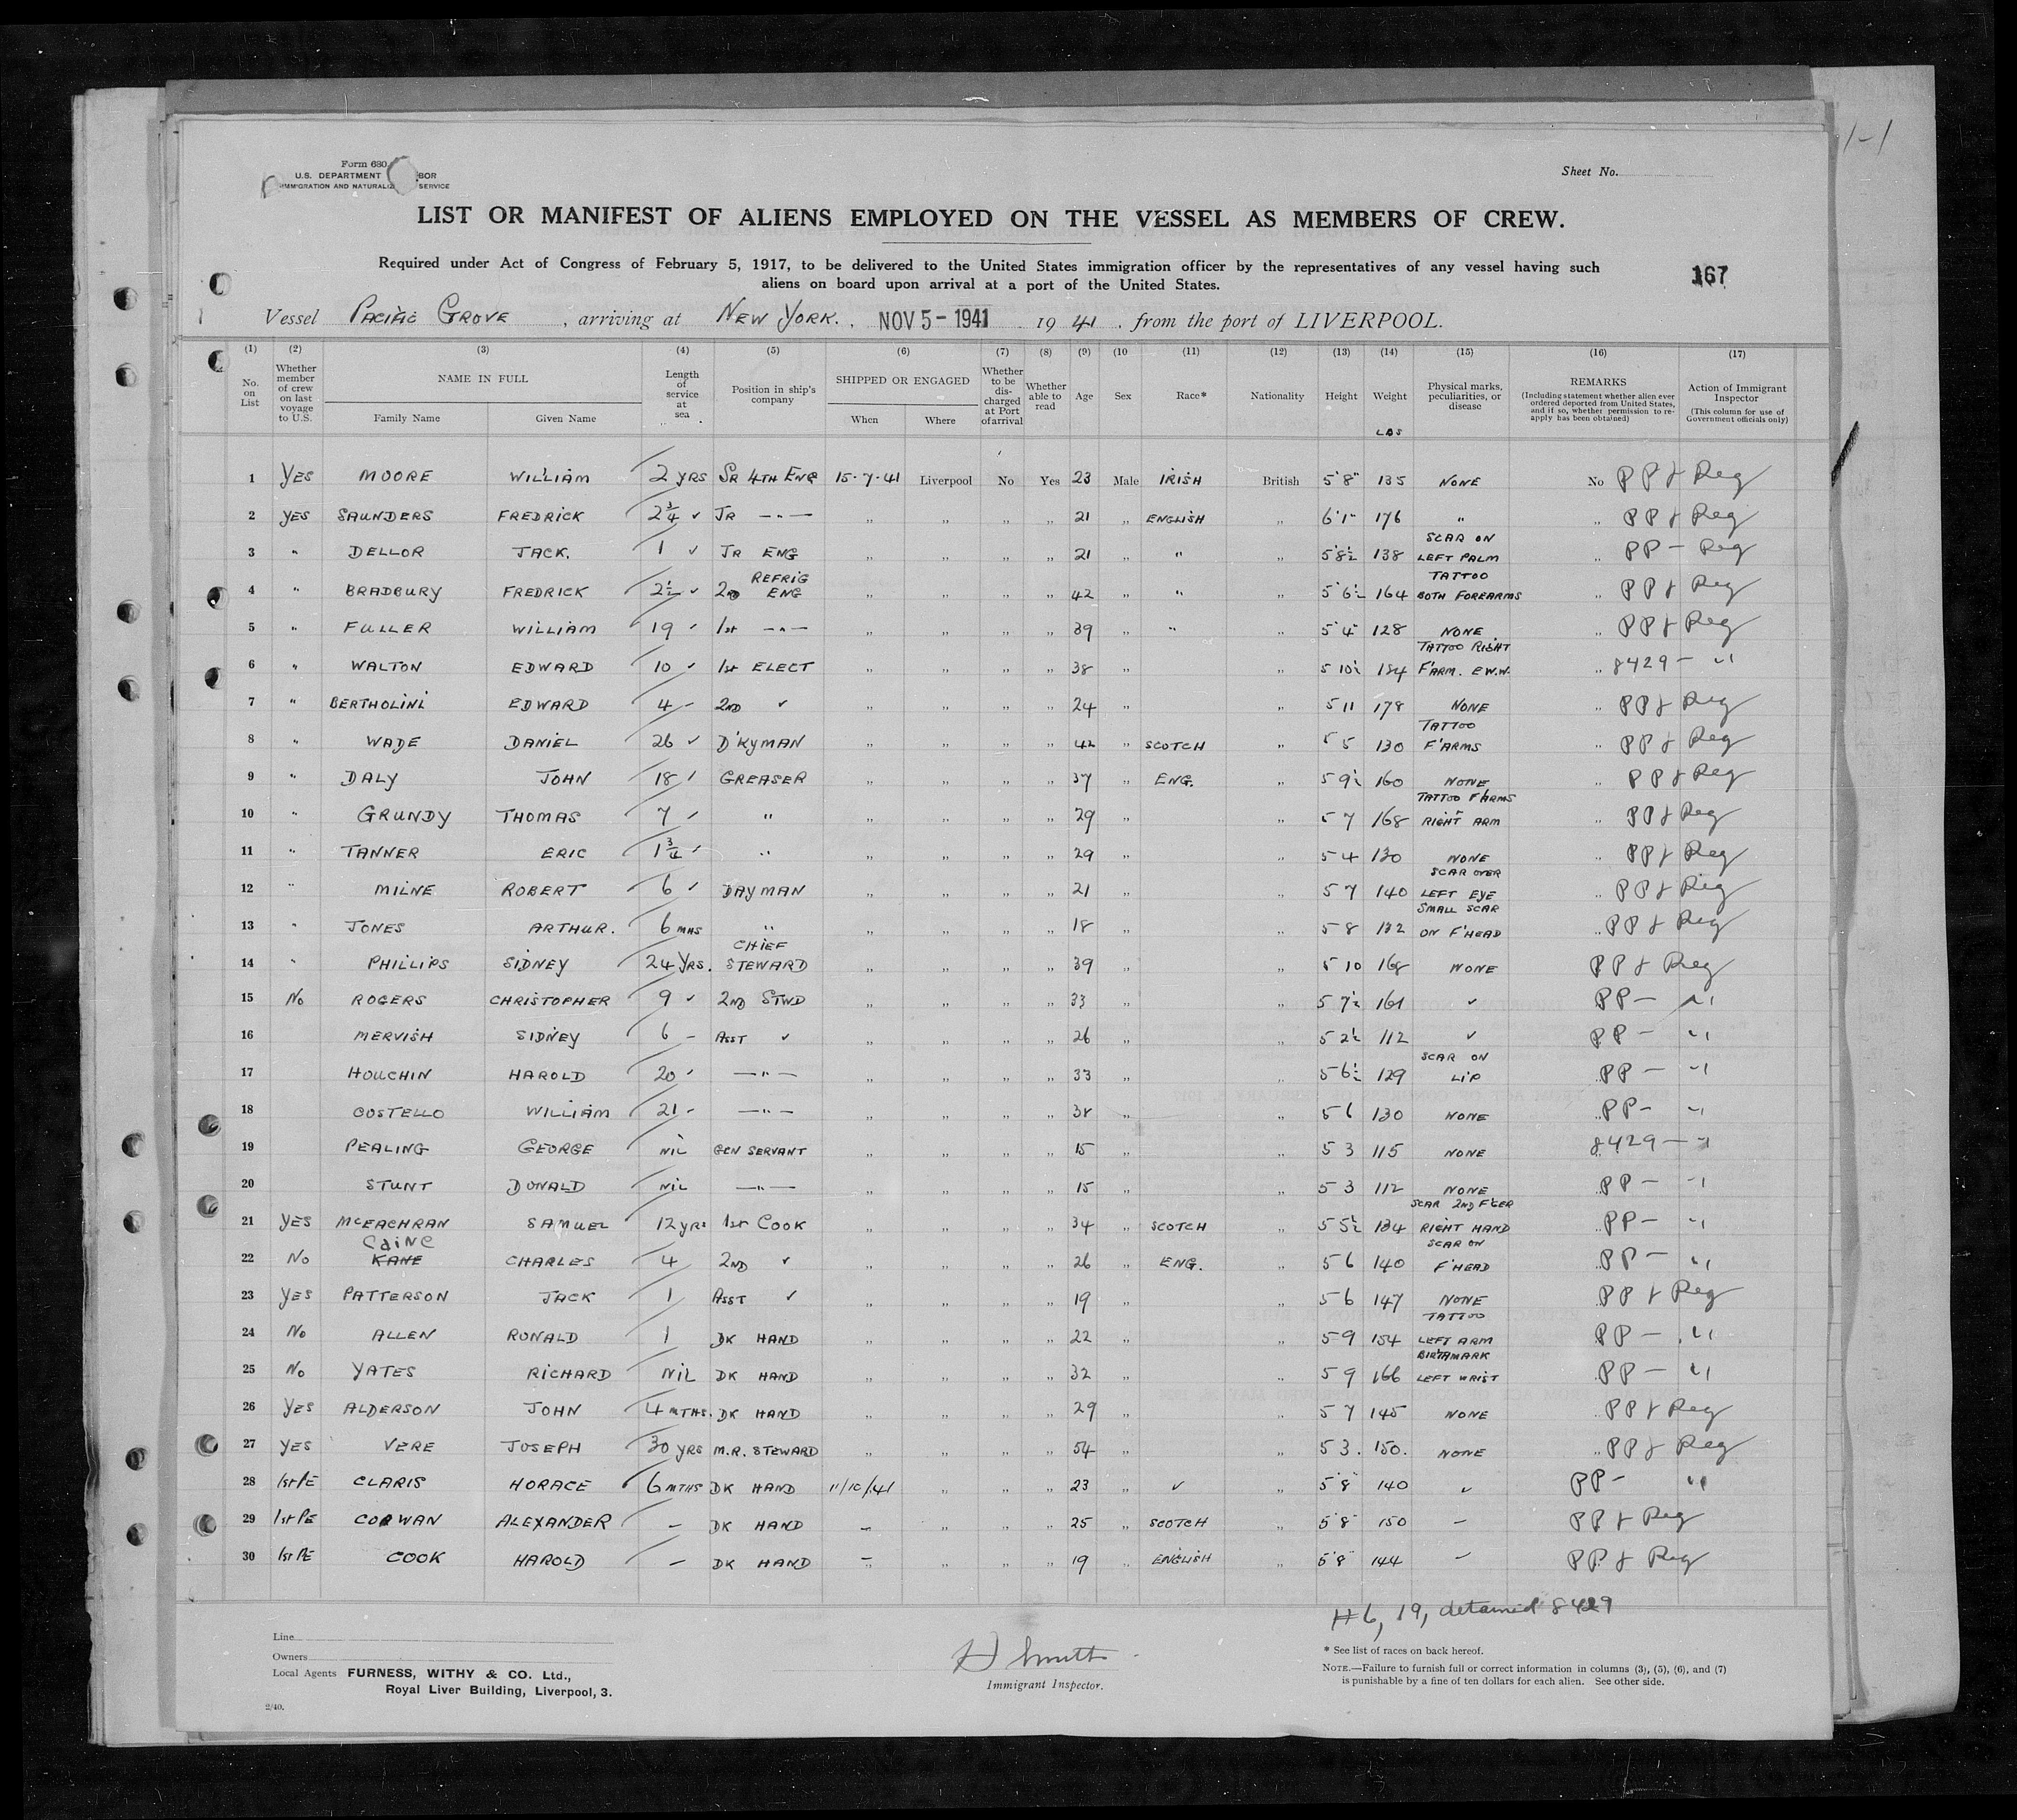 1-1
Form 680
U.S. DEPARTMENT BOR
IMMIGRATION AND NATURALIZ SERVICE
Sheet No.
LIST OR MANIFEST OF ALIENS EMPLOYED ON THE VESSEL AS MEMBERS OF CREW.
Required under Act of Congress of February 5, 1917, to be delivered to the United States immigration officer by the representatives of any vessel having such
aliens on board upon arrival at a port of the United States.
167
Vessel PACIFIC GROVE, arriving at NEW YORK. NOV 5 - 1941 19 41, from the port of LIVERPOOL.
(1) (2) (3) (4) (5) (6) (7) (8) (9) (10 (11) (12) (13) (14) (15) (16) (17)
No. on List Whether member of crew on last voyage to U.S. NAME IN FULL Family Name Given Name Length of service at sea Position in ship's company SHIPPED OR ENGAGED When Where Whether to be discharged at Port of arrival Whether able to read Age Sex Race* Nationality Height Weight LBS Physical marks, peculiarities, or disease REMARKS (Including statement whether alien ever ordered deported from United States, and if so, whether permission to re-apply has been obtained) Action of Immigrant Inspector (This column for use of Government officials only)
1 YES MOORE WILLIAM 2 YRS SR 4TH ENG 15-7-41 Liverpool No Yes 23 Male IRISH British 5'8" 135 NONE No PP & Reg
2 YES SAUNDERS FREDRICK 2¾ ✓ JR —"— " " " " 21 " ENGLISH " 6'1" 176 " " PP & Reg
3 " DELLOR JACK. 1 ✓ JR ENG " " " " 21 " " " 5'8½ 138 SCAR ON LEFT PALM " PP - Reg
4 " BRADBURY FREDRICK 2½ ✓ 2ND REFRIG ENG " " " " 42 " " " 5'6½ 164 TATTOO BOTH FOREARMS " PP & Reg
5 " FULLER WILLIAM 19 ✓ 1st —"— " " " " 39 " " " 5'4" 128 NONE " PP & Reg
6 " WALTON EDWARD 10 ✓ 1st ELECT " " " " 38 " " 5 10½ 184 TATTOO RIGHT F'ARM. E.W.W. " 8429 - "
7 " BERTHOLINI EDWARD 4 - 2ND ✓ " " " " 24 " " 5 11 178 NONE " PP & Reg
8 " WADE DANIEL 26 ✓ D'KYMAN " " " " 42 " SCOTCH " 5 5 130 TATTOO F'ARMS " PP & Reg
9 " DALY JOHN 18 ✓ GREASER " " " " 37 " ENG. " 5 9½ 160 NONE " PP & Reg
10 " GRUNDY THOMAS 7 ✓ " " " " " 29 " " 5 7 168 TATTOO F'ARMS RIGHT ARM " PP & Reg
11 " TANNER ERIC 1¾ ✓ " " " " " 29 " " 5 4 130 NONE " PP & Reg
12 " MILNE ROBERT 6 ✓ DAYMAN " " " " 21 " " 5 7 140 SCAR OVER LEFT EYE " PP & Reg
13 " JONES ARTHUR. 6 MHS " " " " " 18 " " 5 8 132 SMALL SCAR ON F'HEAD " PP & Reg
14 " PHILLIPS SIDNEY 24 YRS. CHIEF STEWARD " " " " 39 " " 5 10 168 NONE PP & Reg
15 NO ROGERS CHRISTOPHER 9 ✓ 2ND STWD " " " " 33 " " 5 7½ 161 ✓ PP - "
16 MERVISH SIDNEY 6 - ASST ✓ " " " " 26 " " 5 2½ 112 ✓ PP - "
17 HOUCHIN HAROLD 20 ✓ —"— " " " " 33 " " 5 6½ 129 SCAR ON LIP " PP - "
18 COSTELLO WILLIAM 21 - —"— " " " " 38 " " 5 6 130 NONE " PP - "
19 PEALING GEORGE NIL GEN SERVANT " " " " 15 " " 5 3 115 NONE 8429 - "
20 STUNT DONALD NIL —"— " " " " 15 " " 5 3 112 NONE " PP - "
21 YES McEACHRAN SAMUEL 12 YRS 1st COOK " " " " 34 " SCOTCH " 5 5½ 134 SCAR 2ND F'GER RIGHT HAND " PP - "
22 NO CAINE KANE CHARLES 4 2ND ✓ " " " " 26 " ENG. " 5 6 140 SCAR ON F'HEAD " PP - "
23 YES PATTERSON JACK 1 ASST ✓ " " " " 19 " " 5 6 147 NONE " PP & Reg
24 NO ALLEN RONALD 1 DK HAND " " " " 22 " " 5 9 154 TATTOO LEFT ARM PP - "
25 NO YATES RICHARD NIL DK HAND " " " " 32 " " 5 9 166 BIRTHMARK LEFT WRIST " PP - "
26 YES ALDERSON JOHN 4 MTHS. DK HAND " " " " 29 " " 5 7 145 NONE " PP & Reg
27 YES VERE JOSEPH 30 YRS M.R. STEWARD " " " " 54 " " 5 3. 150. NONE " PP & Reg
28 1st PE CLARIS HORACE 6 MTHS DK HAND 11/10/41 " " " 23 " ✓ " 5'8" 140 ✓ PP - "
29 1st PE COWAN ALEXANDER — DK HAND — " " " 25 " SCOTCH " 5'8" 150 — PP & Reg
30 1st PE COOK HAROLD — DK HAND — " " " 19 " ENGLISH " 5'8" 144 — PP & Reg
#6, 19, detained 8429
Line
Owners
Local Agents FURNESS, WITHY & CO. Ltd.,
Royal Liver Building, Liverpool, 3.
2/40.
H Smith
Immigrant Inspector.
* See list of races on back hereof.
NOTE.—Failure to furnish full or correct information in columns (3), (5), (6), and (7)
is punishable by a fine of ten dollars for each alien. See other side.